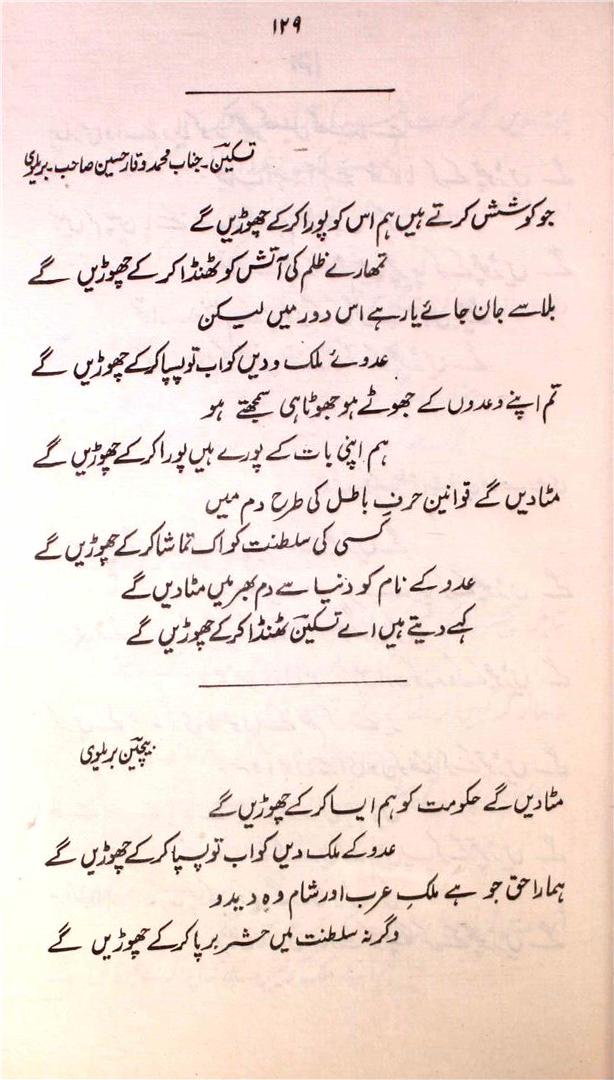 ۱۲۹
تسکینؔ۔ جناب محمد وقار حسین صاحب۔ بریلوی
جو کوشش کرتے ہیں ہم اس کو پورا کر کے چھوڑیں گے
تمھارے ظلم کی آتش کو ٹھنڈا کر کے چھوڑیں گے
بلا سے جان جائے یا رہے اس دور میں لیکن
عدوئے ملک و دیں کو اب تو پسپا کر کے چھوڑیں گے
تم اپنے وعدوں کے جھوٹے ہو جھوٹا ہی سمجھتے ہو
ہم اپنی بات کے پورے ہیں پورا کر کے چھوڑیں گے
مٹا دیں گے قوانین حرفِ باطل کی طرح دم میں
کسی کی سلطنت کو اک تماشا کر کے چھوڑیں گے
عدو کے نام کو دنیا سے دم بھر میں مٹا دیں گے
کہے دیتے ہیں اے تسکینؔ ٹھنڈا کر کے چھوڑیں گے
بیچینؔ بریلوی
مٹا دیں گے حکومت کو ہم ایسا کر کے چھوڑیں گے
عدو کے ملک دیں کو اب تو پسپا کر کے چھوڑیں گے
ہمارا حق جو ہے ملکِ عرب اور شام وہ دیدو
وگرنہ سلطنت میں حشر برپا کر کے چھوڑیں گے